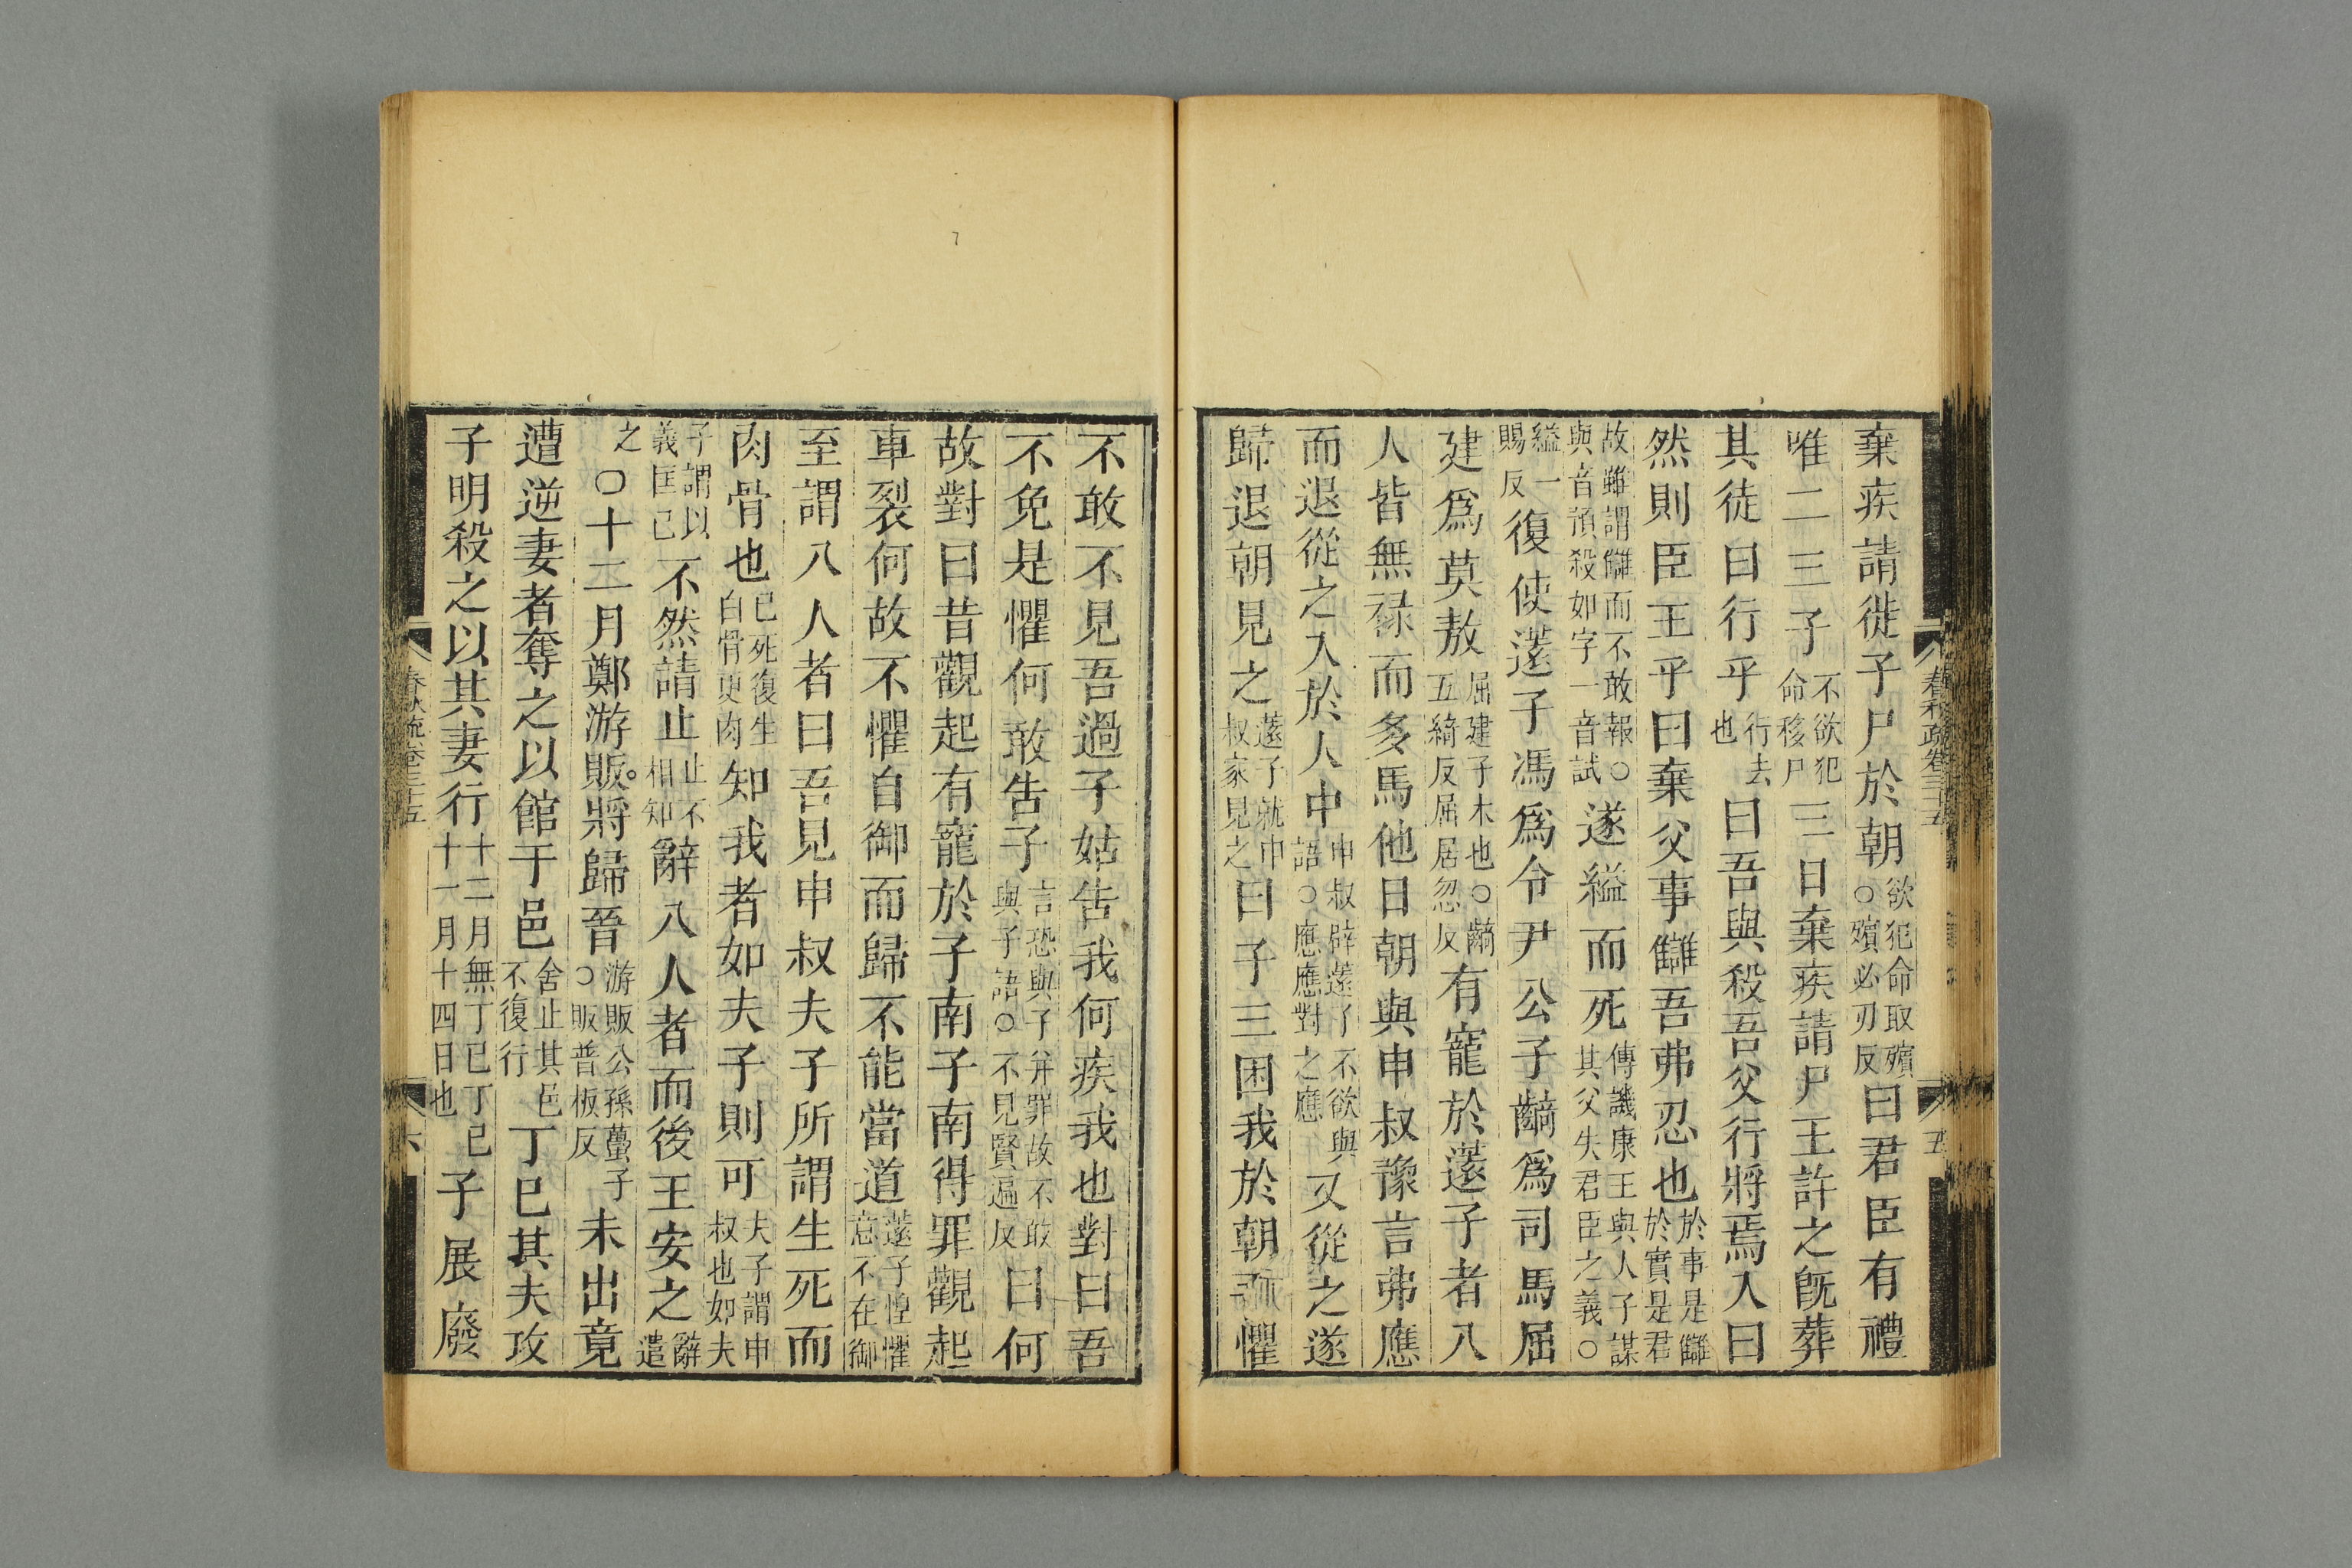 春秋疏卷三十五
五
棄疾請徙子尸於朝欲犯命取殯○殯必刃反曰君臣有禮
唯二三子不欲犯命移尸三日棄疾請尸王許之旣葬
其徒曰行乎行去也曰吾與殺吾父行將焉入曰
然則臣王乎曰棄父事讎吾弗忍也於事是讎於實是君
故雖謂讎而不敢報○與音預殺如字一音試遂縊而死傳譏康王與人子謀其父失君臣之義○
縊一賜反復使薳子馮爲令尹公子齮爲司馬屈
建爲莫敖屈建子木也○齮五綺反屈居忽反有寵於薳子者八
人皆無祿而多馬他日朝與申叔豫言弗應
而退從之入於人中申叔辟薳子不欲與語○應應對之應又從之遂
歸退朝見之薳子就申叔家見之曰子三困我於朝吾懼
不敢不見吾過子姑告我何疾我也對曰吾
不免是懼何敢告子言恐與子并罪故不敢與子語○不見賢遍反曰何
故對曰昔觀起有寵於子南子南得罪觀起
車裂何故不懼自御而歸不能當道薳子惶懼意不在御
至謂八人者曰吾見申叔夫子所謂生死而
肉骨也已死復生白骨更肉知我者如夫子則可夫子謂申叔也如夫
子謂以義匡己不然請止止不相知辭八人者而後王安之辭遣
之○十二月鄭游眅將歸晉游眅公孫蠆子○眅普板反未出竟
遭逆妻者奪之以館于邑舍止其邑不復行丁巳其夫攻
子明殺之以其妻行十二月無丁巳丁巳十一月十四日也子展廢
春秋疏卷三十五
六